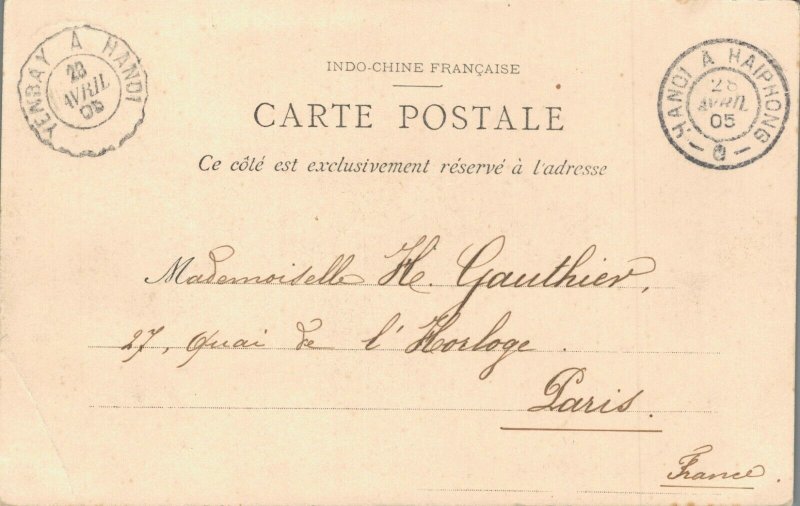 YENBAY A HANOI
28
AVRIL
05
HANOI A HAIPHONG
28
AVRIL
05
INDO-CHINE FRANÇAISE
CARTE POSTALE
Ce côté est exclusivement réservé à l'adresse
Mademoiselle H. Gauthier,
27, Quai de l'Horloge.
Paris.
France.